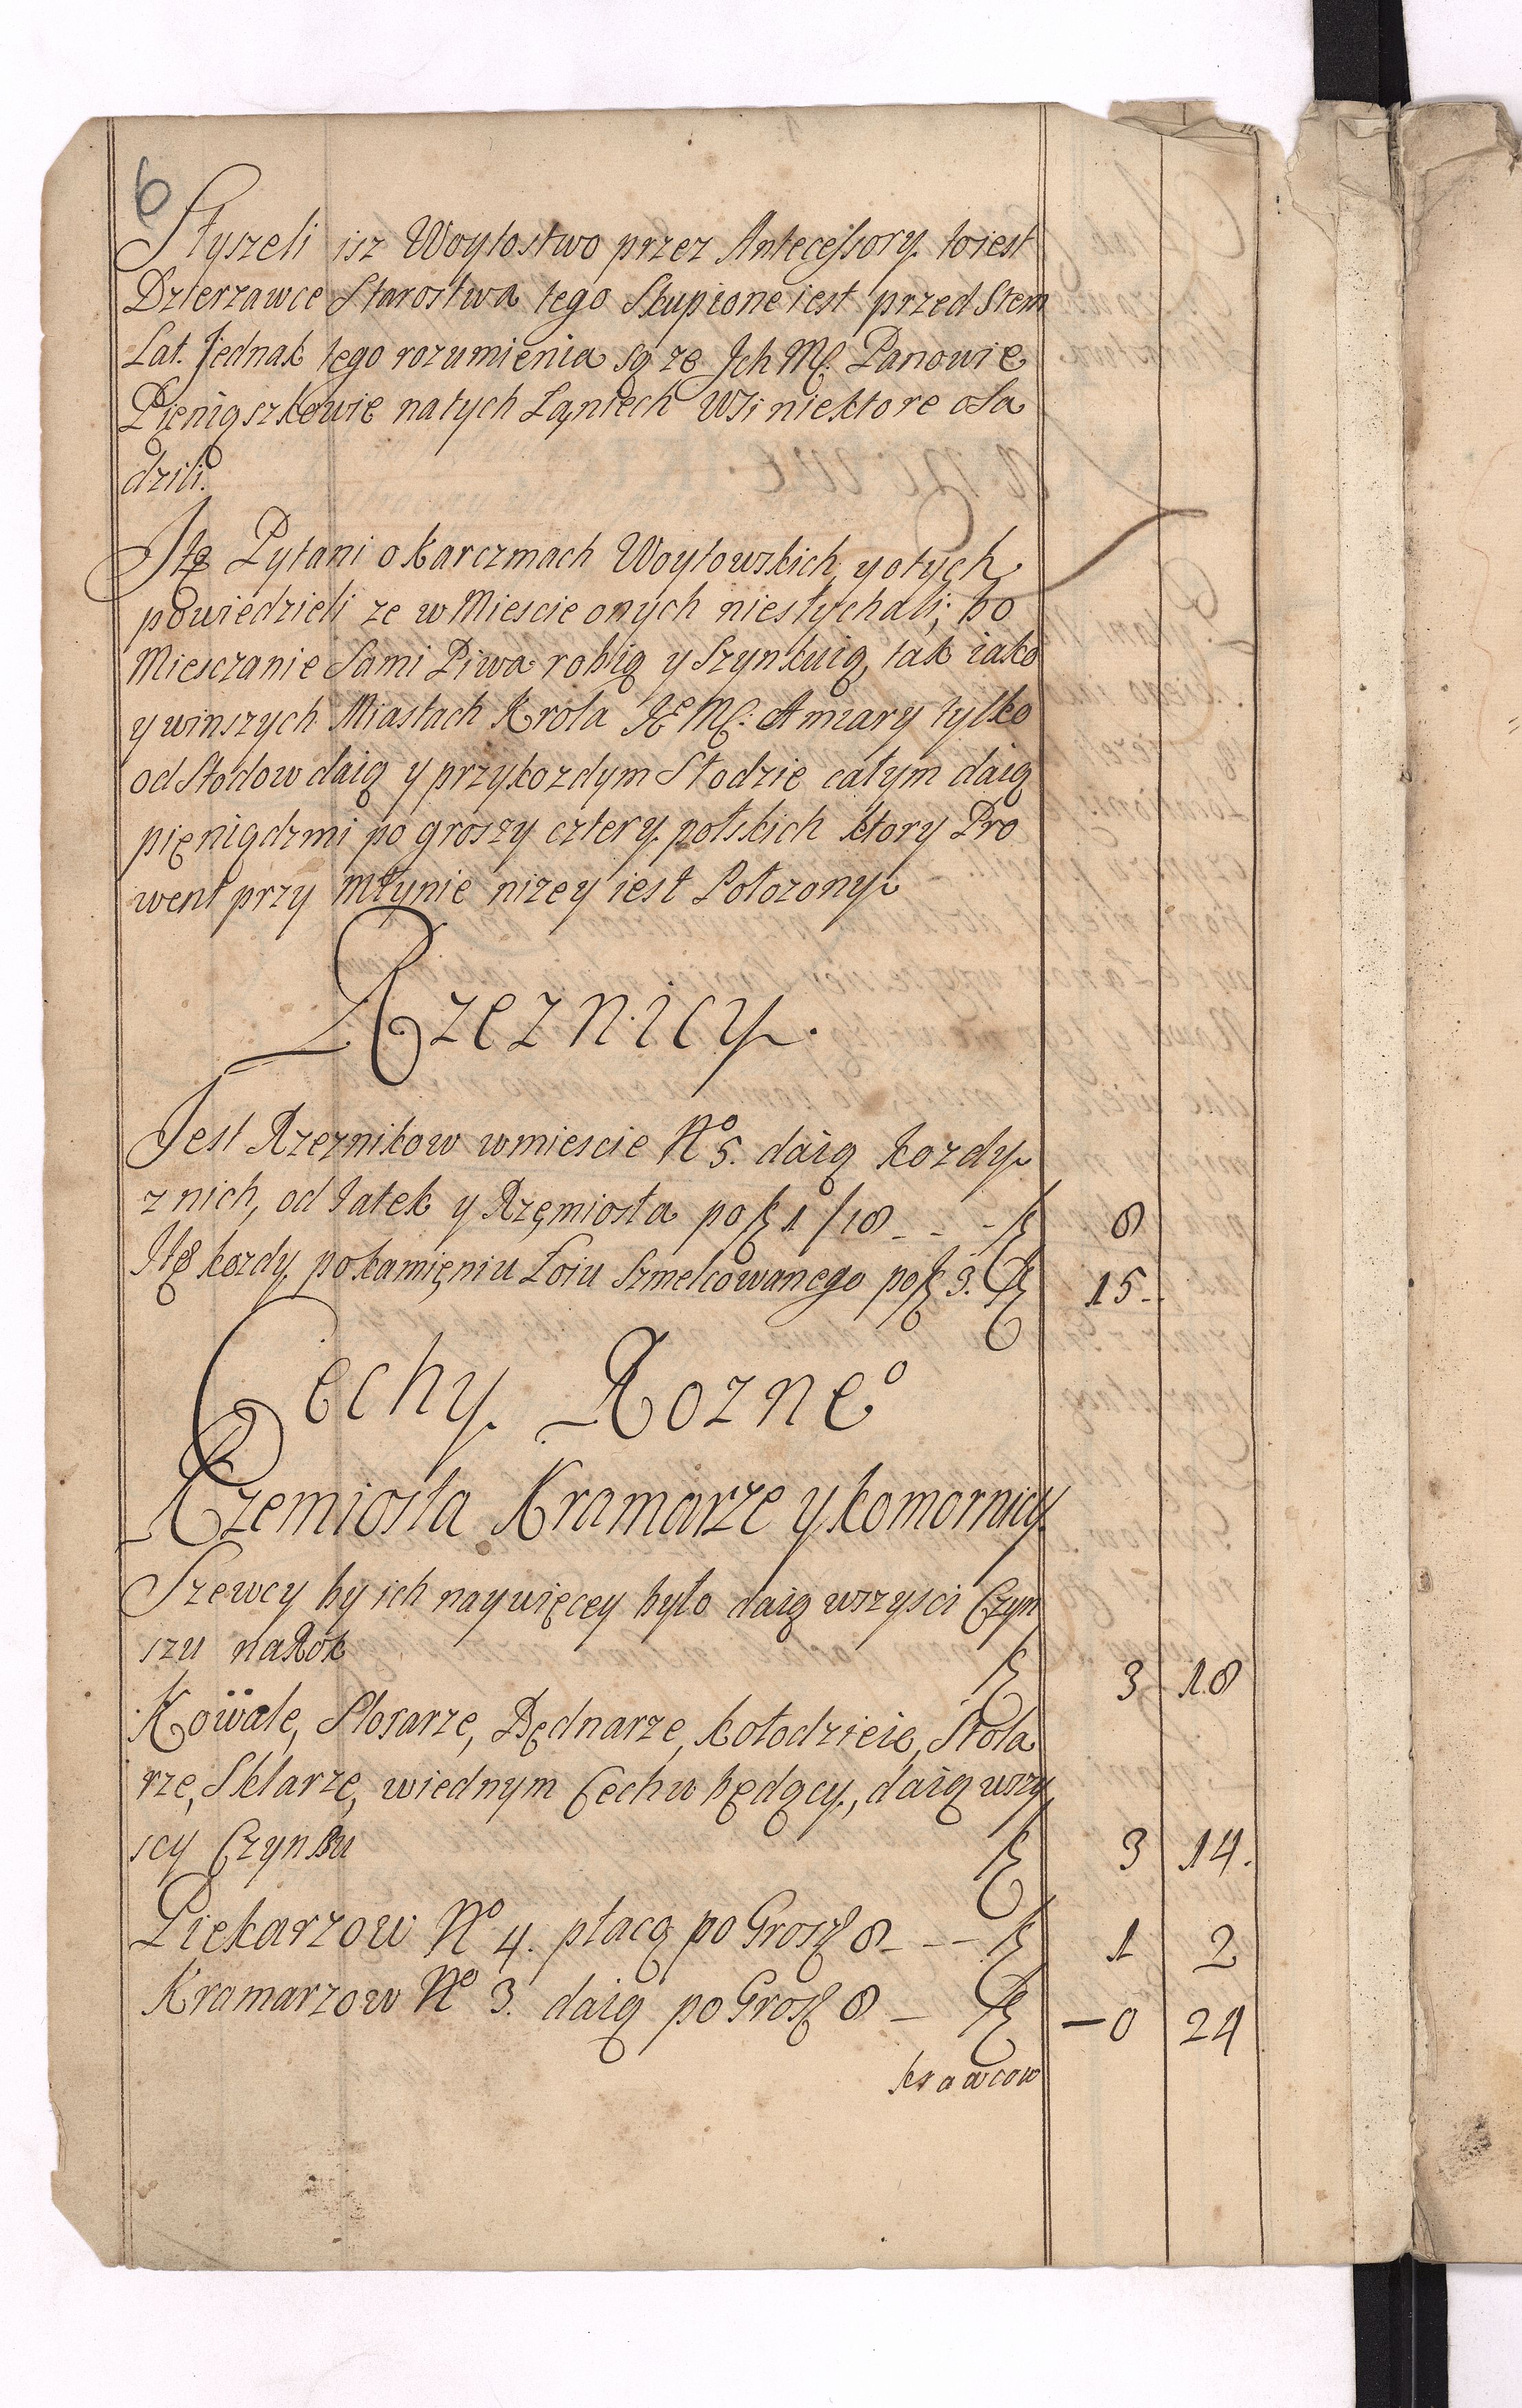 6
Słyszeli isz Woytostwo przez Antecessory. to iest
Dzierzawce Starostwa tego Skupione iest przed Stem
Lat. Jednak tego rozumienia są ze Ich Mſ. Panowie
Pieniąszkowie na tych Łąniech Wsi niektore osa
dzili.
Itē Pytani o Karczmach Woytowskich, y o tych
powiedzieli ze w Miescie onych niesłychali; bo
Miesczanie Sami Piwa robią y Szynkuią, tak iako
y winszych Miastach Krola JE Mſ: A miary tylko
od Słodow daią y przykozdym Słodzie całym daią
pięniądzmi po groszy cztery. polskich ktory Pro
went przy młynie nizey iest Położony.
Rzeznicy.
Jest Rzeznikow wmiescie No 5. daią kozdy
z nich, od Jatek y Rzęmiosła po ƒ 1 /18 _ _ _ ƒ 8
Itē kozdy. po kamięniu Łoiu Szmelcowanego po ƒ 3. ƒ 15 _
Cechy. Rozne
Rzemiosła Kramarze y komornicy.
Szewcy by ich naywięcey było daią wszysci Czyn
szu na Rok ƒ 3 18
Kowale, Slosarze, Będnarze, kołodzieie, Stola
rze, Sklarze, wiednym Cechu będący., daią wszy
scy Czynszu ƒ 3 14.
Piekarzow No 4. płacą po Grosz 8 _ _ _ ƒ 1 2
Kramarzow No 3. daią po Grosz 8 _ ƒ _ 0 24
krawcow